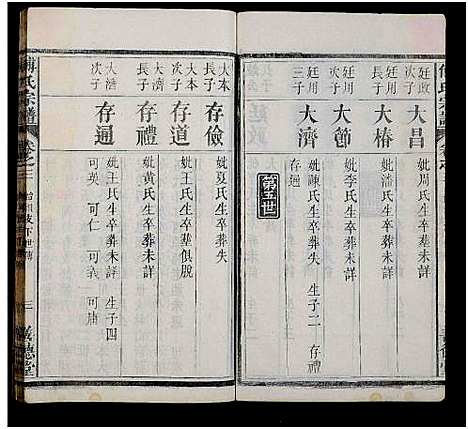 廷政
次子
大昌
妣周氏生卒葬未詳
廷用
長子
大椿
妣潘氏生卒葬未詳
廷用
次子
大節
妣李氏生卒葬未詳
廷用
三子
大濟
妣陳氏生卒葬失 生子二 存禮
存遁
第五世
大本
次子
存儉
妣夏氏生卒葬失
大本
長子
存道
妣王氏生卒塟俱脫
大濟
長子
存禮
妣黃氏生卒葬未詳
大濟
次子
存遁
妣王氏生卒葬未詳 生子四
可完 可仁 可義 可庸
傅氏宗譜
卷之三
三
義德堂